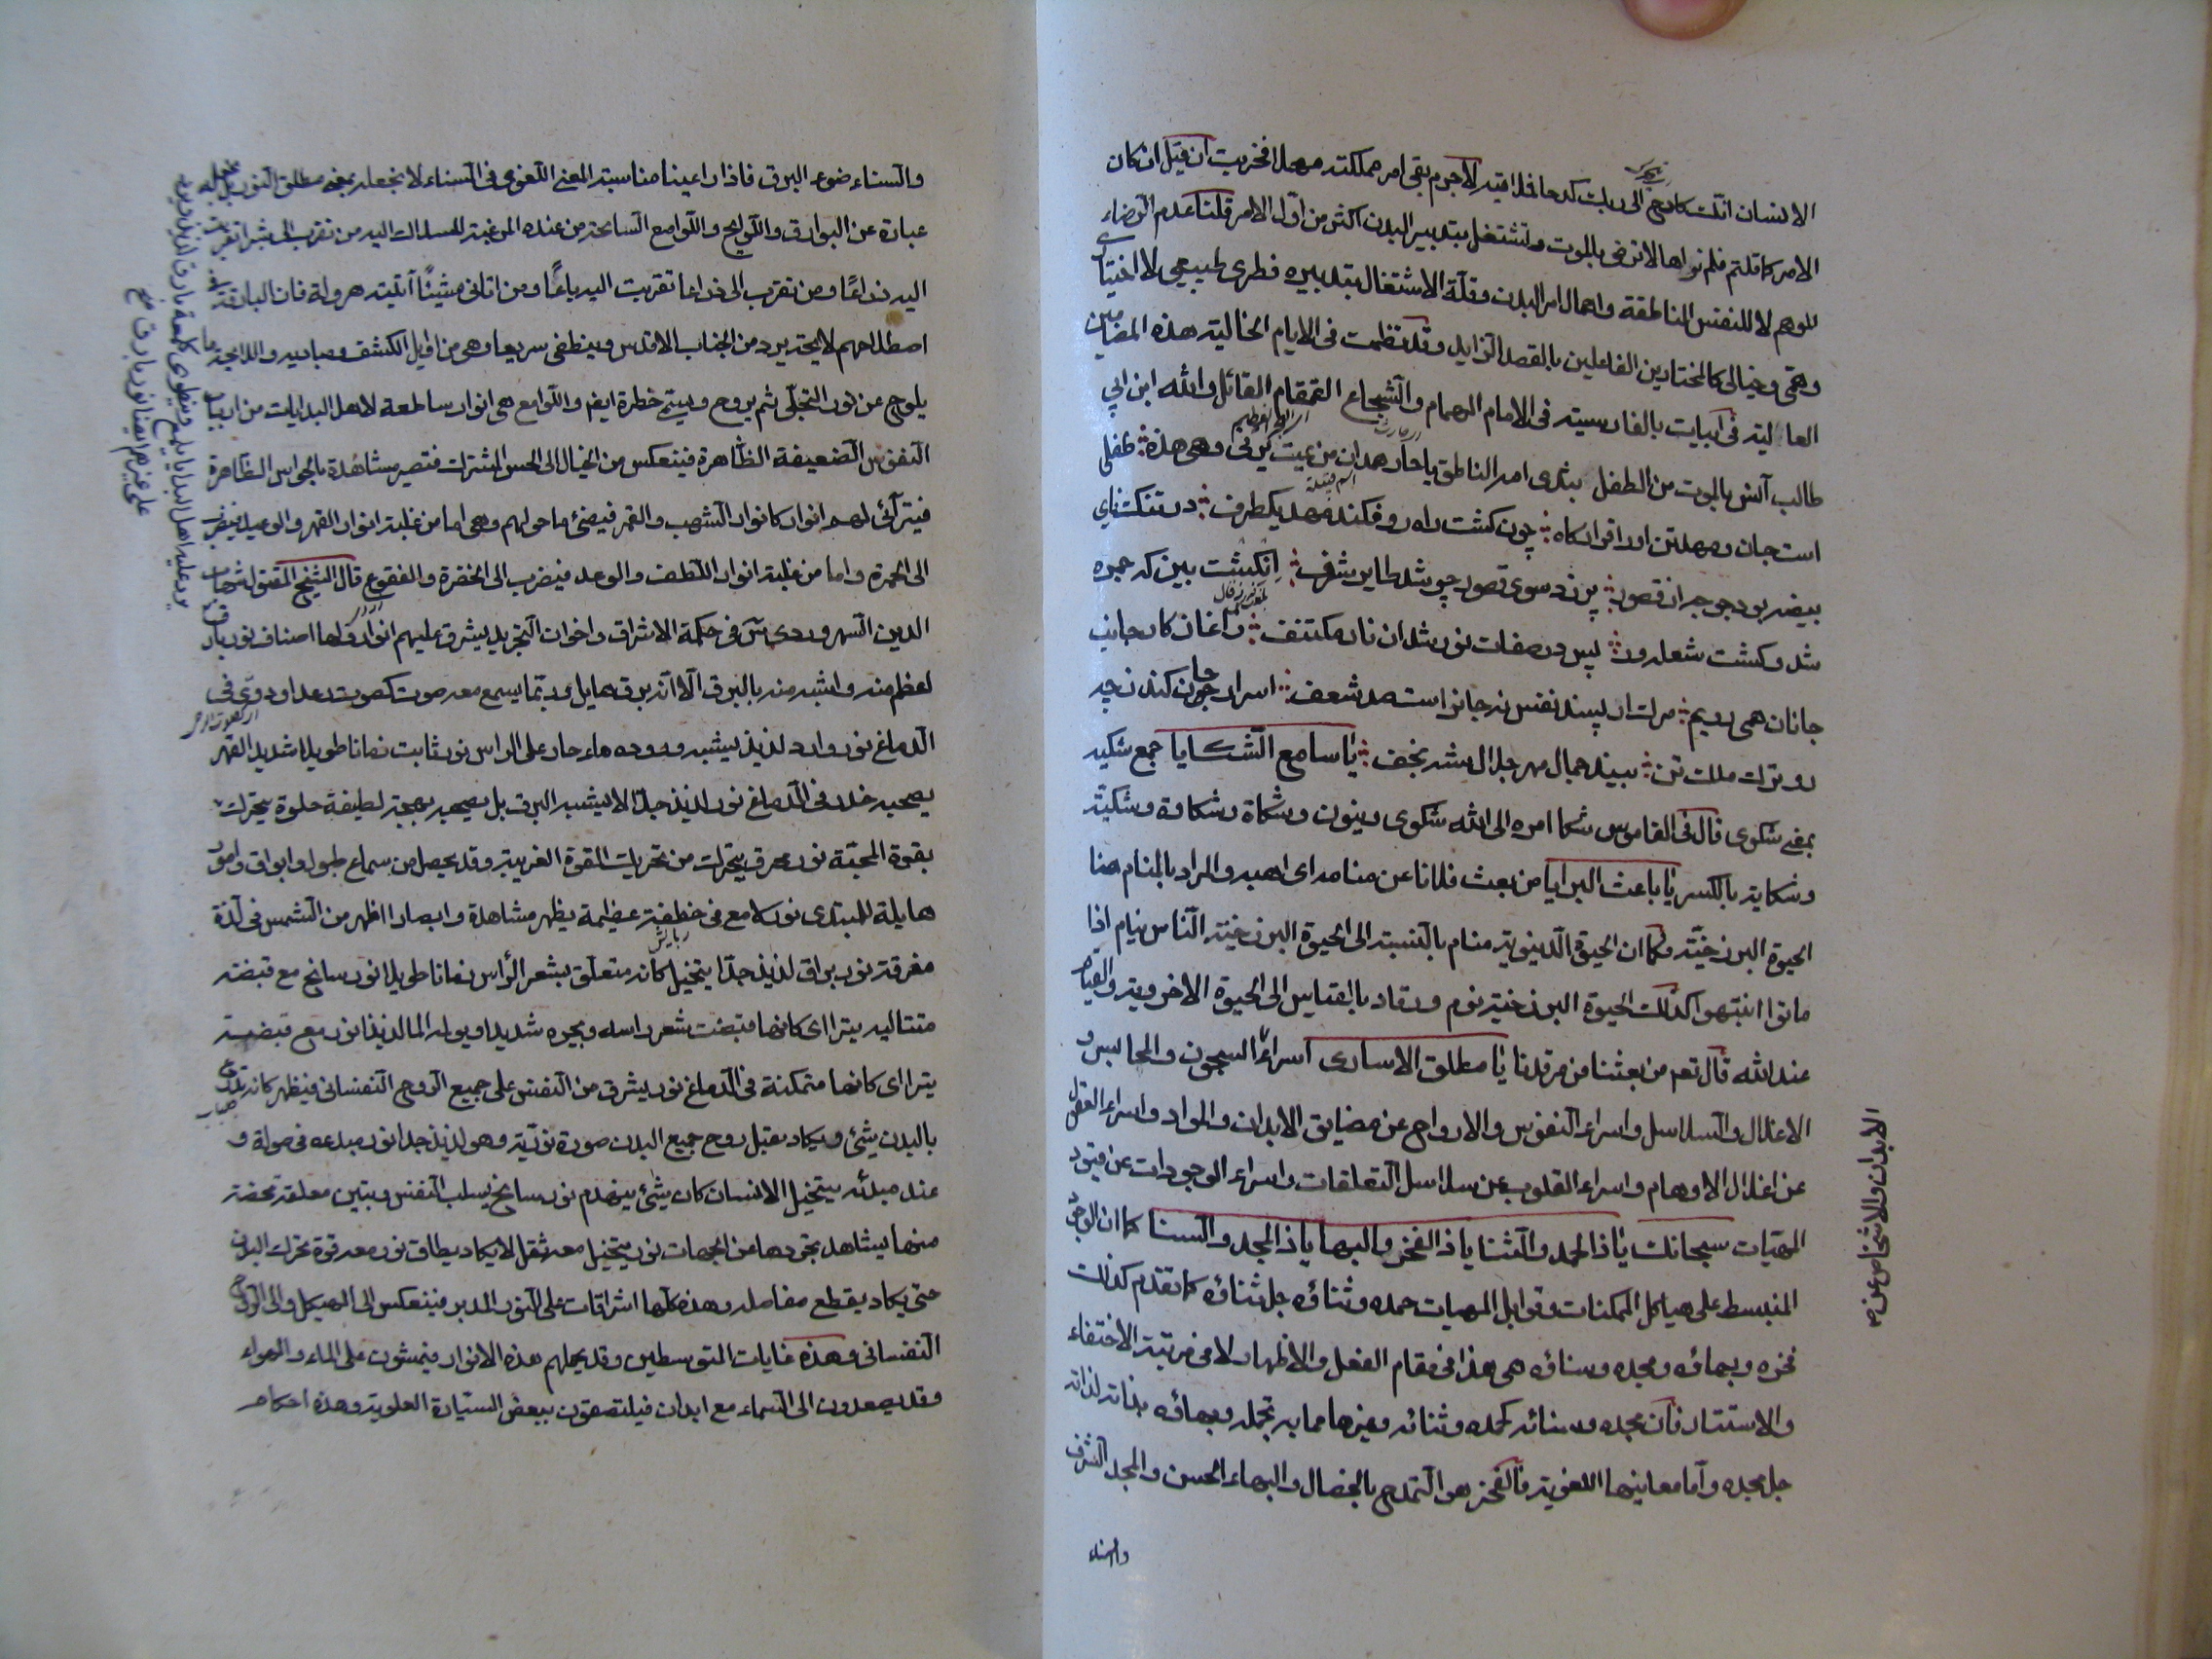 الانسان انك كادح الى ربك كدحا فملاقيه لاجرم بقى امر مملكته مهملا فخربت ان قيل ان كان
الامر كما قلتم فلم نراها لا ترضى بالموت وتشتغل بتدبير البدن اكثر من اول الامر قلنا عدم الرضاء
للوهم لا للنفس الناطقة واهمال امر البدن وقلة الاشتغال بتدبيره فطرى طبيعى لا اختيارى
وهمى وخيالى كالمختارين الفاعلين بالقصد الزايد وقد نظمت فى الايام الخالية هذه المضامين
العالية فى ابيات بالفارسية فى الامام الهمام والشجاع القمقام القائل والله ابن ابي
طالب آنس بالموت من الطفل بثدى امه الناطق يا حار همدان من يمت يرنى وهى هذه طفلى
است جان ومهد تن او را قرارگاه چون گشت راهرو فكند مهد يكطرف در تنگناى
بيضه بود جوجه از قصور پر زد سوى قصور چو شد طاير شرف انگشت بين كه جمره
شد و گشت شعله ور پس در صفات نور شد ان نار مكتنف كار جانب
جانان همى رويم مرگ ار پسند نفس نه جانراست صد شعف اسرار جان كند ز چه
رو ترك ملك تن بيند جمال مهر جلال شه نجف يا سامع الشكايا جمع شكيه
بمعنى شكوى قال فى القاموس شكا امره الى الله شكوى وينون وشكاة وشكاوة وشكية
وشكاية بالكسر يا باعث البرايا من بعث فلانا عن منامه اى اهبه والمراد بالمنام هنا
الحيوة البرزخية وكما ان الحيوة الدنيوية منام بالنسبة الى الحيوة البرزخية الناس نيام اذا
ماتوا انتبهوا كذلك الحيوة البرزخية نوم ورقاد بالقياس الى الحيوة الاخروية والقيام
عند الله قال تعم من بعثنا من مرقدنا يا مطلق الاسارى اسراء السجون والمحابس و
الاغلال والسلاسل واسراء النفوس والارواح عن مضايق الابدان والمواد واسراء العقول
عن اغلال الاوهام واسراء القلوب عن سلاسل التعلقات واسراء الوجودات عن قيود
المهيات سبحانك يا ذا الحمد والثنا يا ذا الفخر والبها يا ذا المجد والسنا كما ان الوجود
المنبسط على هياكل الممكنات وقوابل المهيات حمده وثناؤه جل ثناؤه كما تقدم كذلك
فخره وبهاؤه ومجده وسناؤه هى هذا فى مقام الفعل والاظهار لا فى مرتبة الاختفاء
والاستتار فان مجده وسنائه كحمده وثنائه وغيرها مما به تجمله وبهاؤه بذاته لذاته
جل مجده واما معانيها اللغوية فالفخر هو التمدح بالخصال والبهاء الحسن والمجد الشرف
والسناء
الابدان والاشخاص عن
والسناء ضوء البرق فاذا راعينا مناسبة المعنى اللغوى فى السناء لا نجعله بمعنى مطلق النور بل نجعله
عبارة عن البوارق واللوايح واللوامع السانحة من عنده المرغبة للسلاك اليه من تقرب الى شبرا تقربت
اليه ذراعا ومن تقرب الى ذراعا تقربت اليه باعا ومن اتانى مشيا آتيته هرولة فان البارقة فى
اصطلاحهم لايحة يرد من الجناب الاقدس وينطفى سريعا وهى من اوايل الكشف ومباديه واللايحة ما
يلوح عن نور التجلى ثم يروح ويسمى خطرة ايضا واللوامع هى انوار ساطعة لاهل البدايات من ارباب
النفوس الضعيفة الظاهرة فينعكس من الخيال الى الحس المشترك فتصير مشاهدة بالحواس الظاهرة
فيترائى لهم انوار كانوار الشهب والقمر فيضئ ما حولهم وهى اما من غلبة انوار القهر والوعيد فيضرب
الى الحمرة واما من غلبة انوار اللطف والوعد فيضرب الى الخضرة والفقوع قال الشيخ المقتول شهاب
الدين السهروردى س فى حكمة الاشراق واخوان التجريد يشرق عليهم انوار ولها اصناف نور بارق
اعظم منه واشبه منه بالبرق الا انه برق هايل وربما يسمع معه صوت كصوت رعد او دوى فى
الدماغ نور وارد لذيذ يشبه وروده ماء حار على الراس نور ثابت زمانا طويلا شديد القهر
يصحبه خدر فى الدماغ نور لذيذ جدا لا يشبه البرق بل يصحبه بهجة لطيفة حلوة يتحرك
بقوة المحبة نور محرق يتحرك من تحريك القوة الغريبة وقد يحصل من سماع طبول وابواق وامور
هايلة للمبتدى نور لامع فى خطفة عظيمة يظهر مشاهدة وابصارا اظهر من الشمس فى لذة
مغرقة نور براق لذيذ جدا يتخيل كانه متعلق بشعر الرأس زمانا طويلا نور سانح مع قبضة
مثالية يترااى كانها قبضت شعر راسه ويجره شديدا ويولمه الما لذيذا نور مع قبضة
يترااى كانها متمكنة فى الدماغ نور يشرق من النفس على جميع الروح النفسانى فيظهر كانه تدرع
بالبدن شئ ويكاد يقبل روح جميع البدن صورة نورية وهو لذيذ جدا نور مبدءه فى صولة و
عند مبدئه يتخيل الانسان كان شئ ينهدم نور سانح يسلب النفس وتبين معلقة محضة
منها يشاهد تجردها عن الجهات نور يتخيل معه ثقل لا يكاد يطاق نور معه قوة تحرك البدن
حتى يكاد يقطع مفاصله وهذه كلها اشراقات على النور المدبر فينعكس الى الهيكل والى الروح
النفسانى وهذه غايات المتوسطين وقد يحملهم هذه الانوار فيمشون على الماء والهواء
وقد يصعدون الى السماء مع ابدان فيلتصقون ببعض السيادة العلوية وهذه احكام